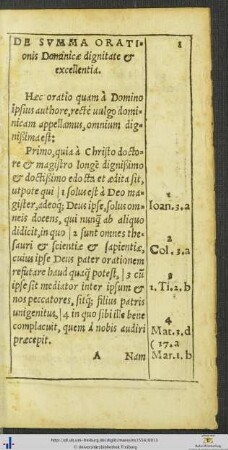 DE SVMMA ORATI-
onis Dominicæ dignitate &
excellentia.
1
Hæc oratio quam à Domino
ipsius authore, rectè vulgo domi-
nicam appellamus, omnium dig-
nissima est:
Primo, quia à Christo docto-
re & magistro longè dignissimo
& doctissimo edocta et ædita sit,
utpote qui |1 solus est à Deo ma-
gister, adeoq; Deus ipse, solus om-
neis docens, qui nunq̃ ab aliquo
didicit, in quo |2 sunt omnes the-
sauri & scientiæ & sapientiæ,
cuius ipse Deus pater orationem
refutare haud quaq̃ potest, |3 cũ
ipse sit mediator inter ipsum &
nos peccatores, sitq; filius patris
unigenitus, |4 in quo sibi ille bene
complacuit, quem à nobis audiri
præcepit.
A Nam
1
Ioan.3.a
2
Col.3.a
3
1.Ti.2.b
4
Mat.3.d
(17.a
Mar.1.b
© Universitätsbibliothek Freiburg